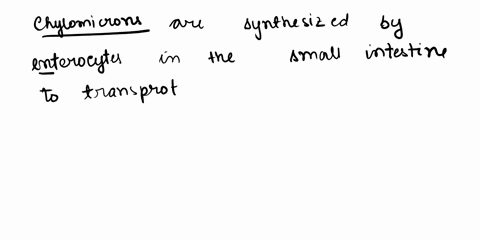 Chylomicrons are synthesized by
enterocytes in the small intestine
to transprot